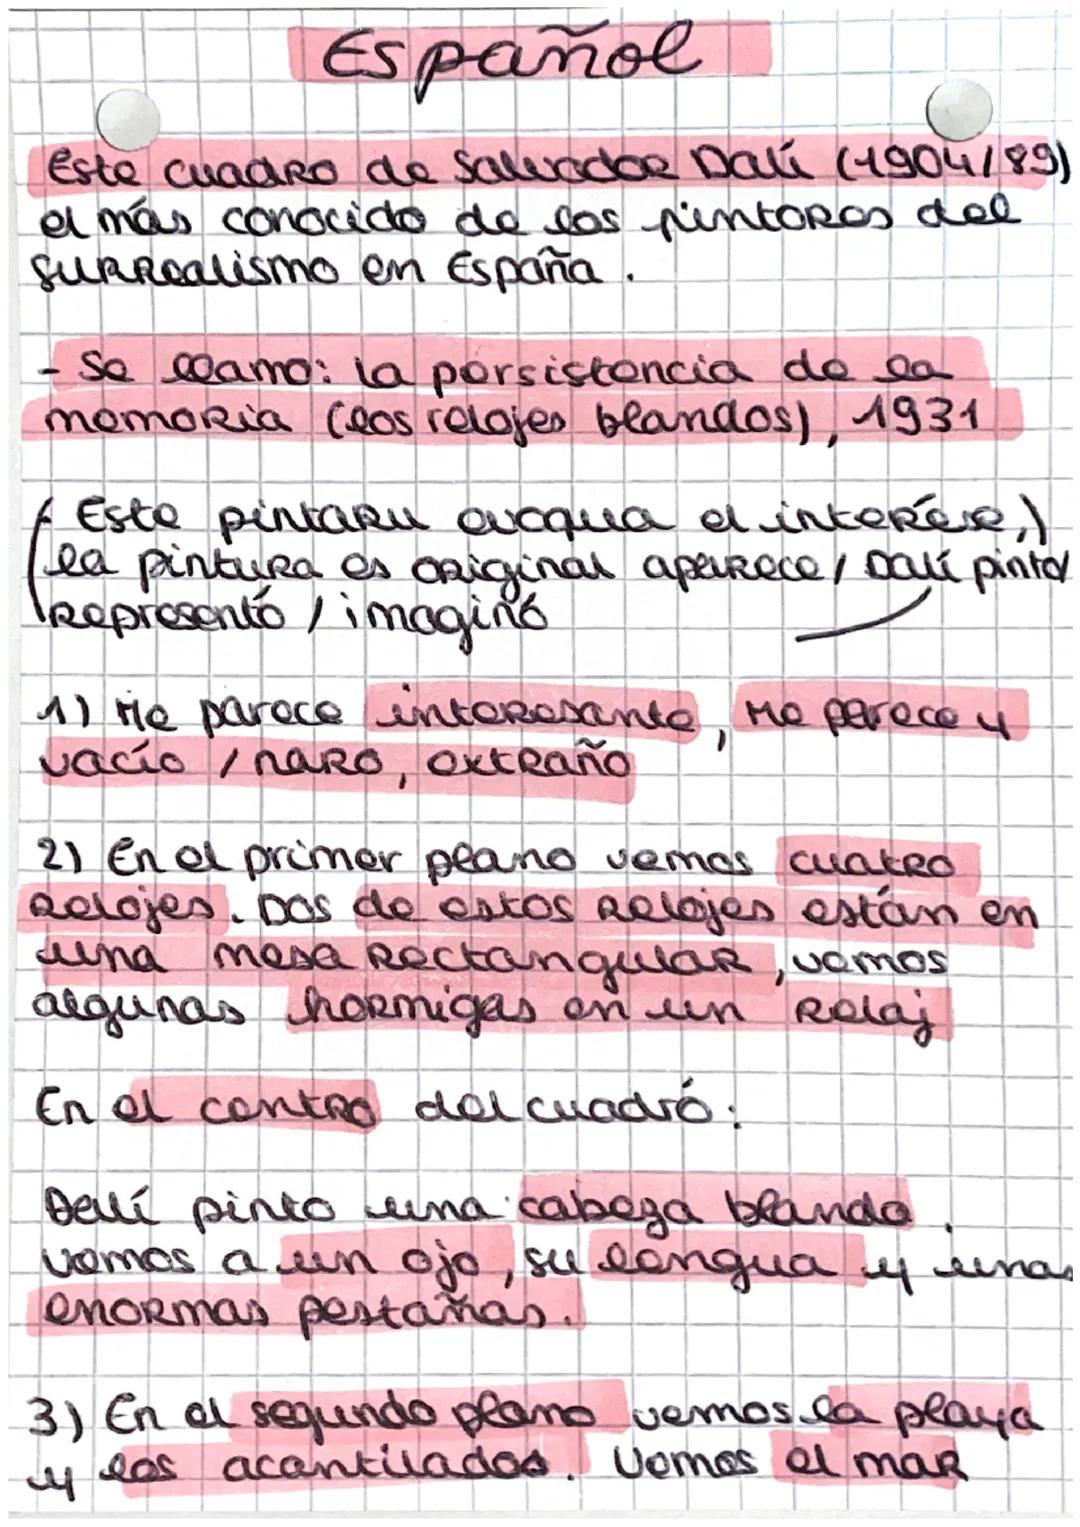 Español
Este cuadro de Salvador Dalí (1904/89)
el más conocido de los pintores del
surrealismo en España.
- Se llamo: la persistencia de la
memoria (los relojes blandos), 1931
(Este pintaru evoqua el interése,)
la pintura es original aparece / Dalí pinto/
representó / imaginó
1) Me parece interesante, Me parece y
vacío / raro, extraño
2) En el primer plano vemos cuatro
relojes. Dos de estos relojes están en
una mesa rectangular, vemos
algunas hormigas en un relaj
En el centro del cuadró:
Dalí pinto una cabeza blanda.
vemos a un ojo, su lengua y unas
enormas pestañas.
3) En el segundo plano vemos la playa
y los acantilados. Vemos el mar